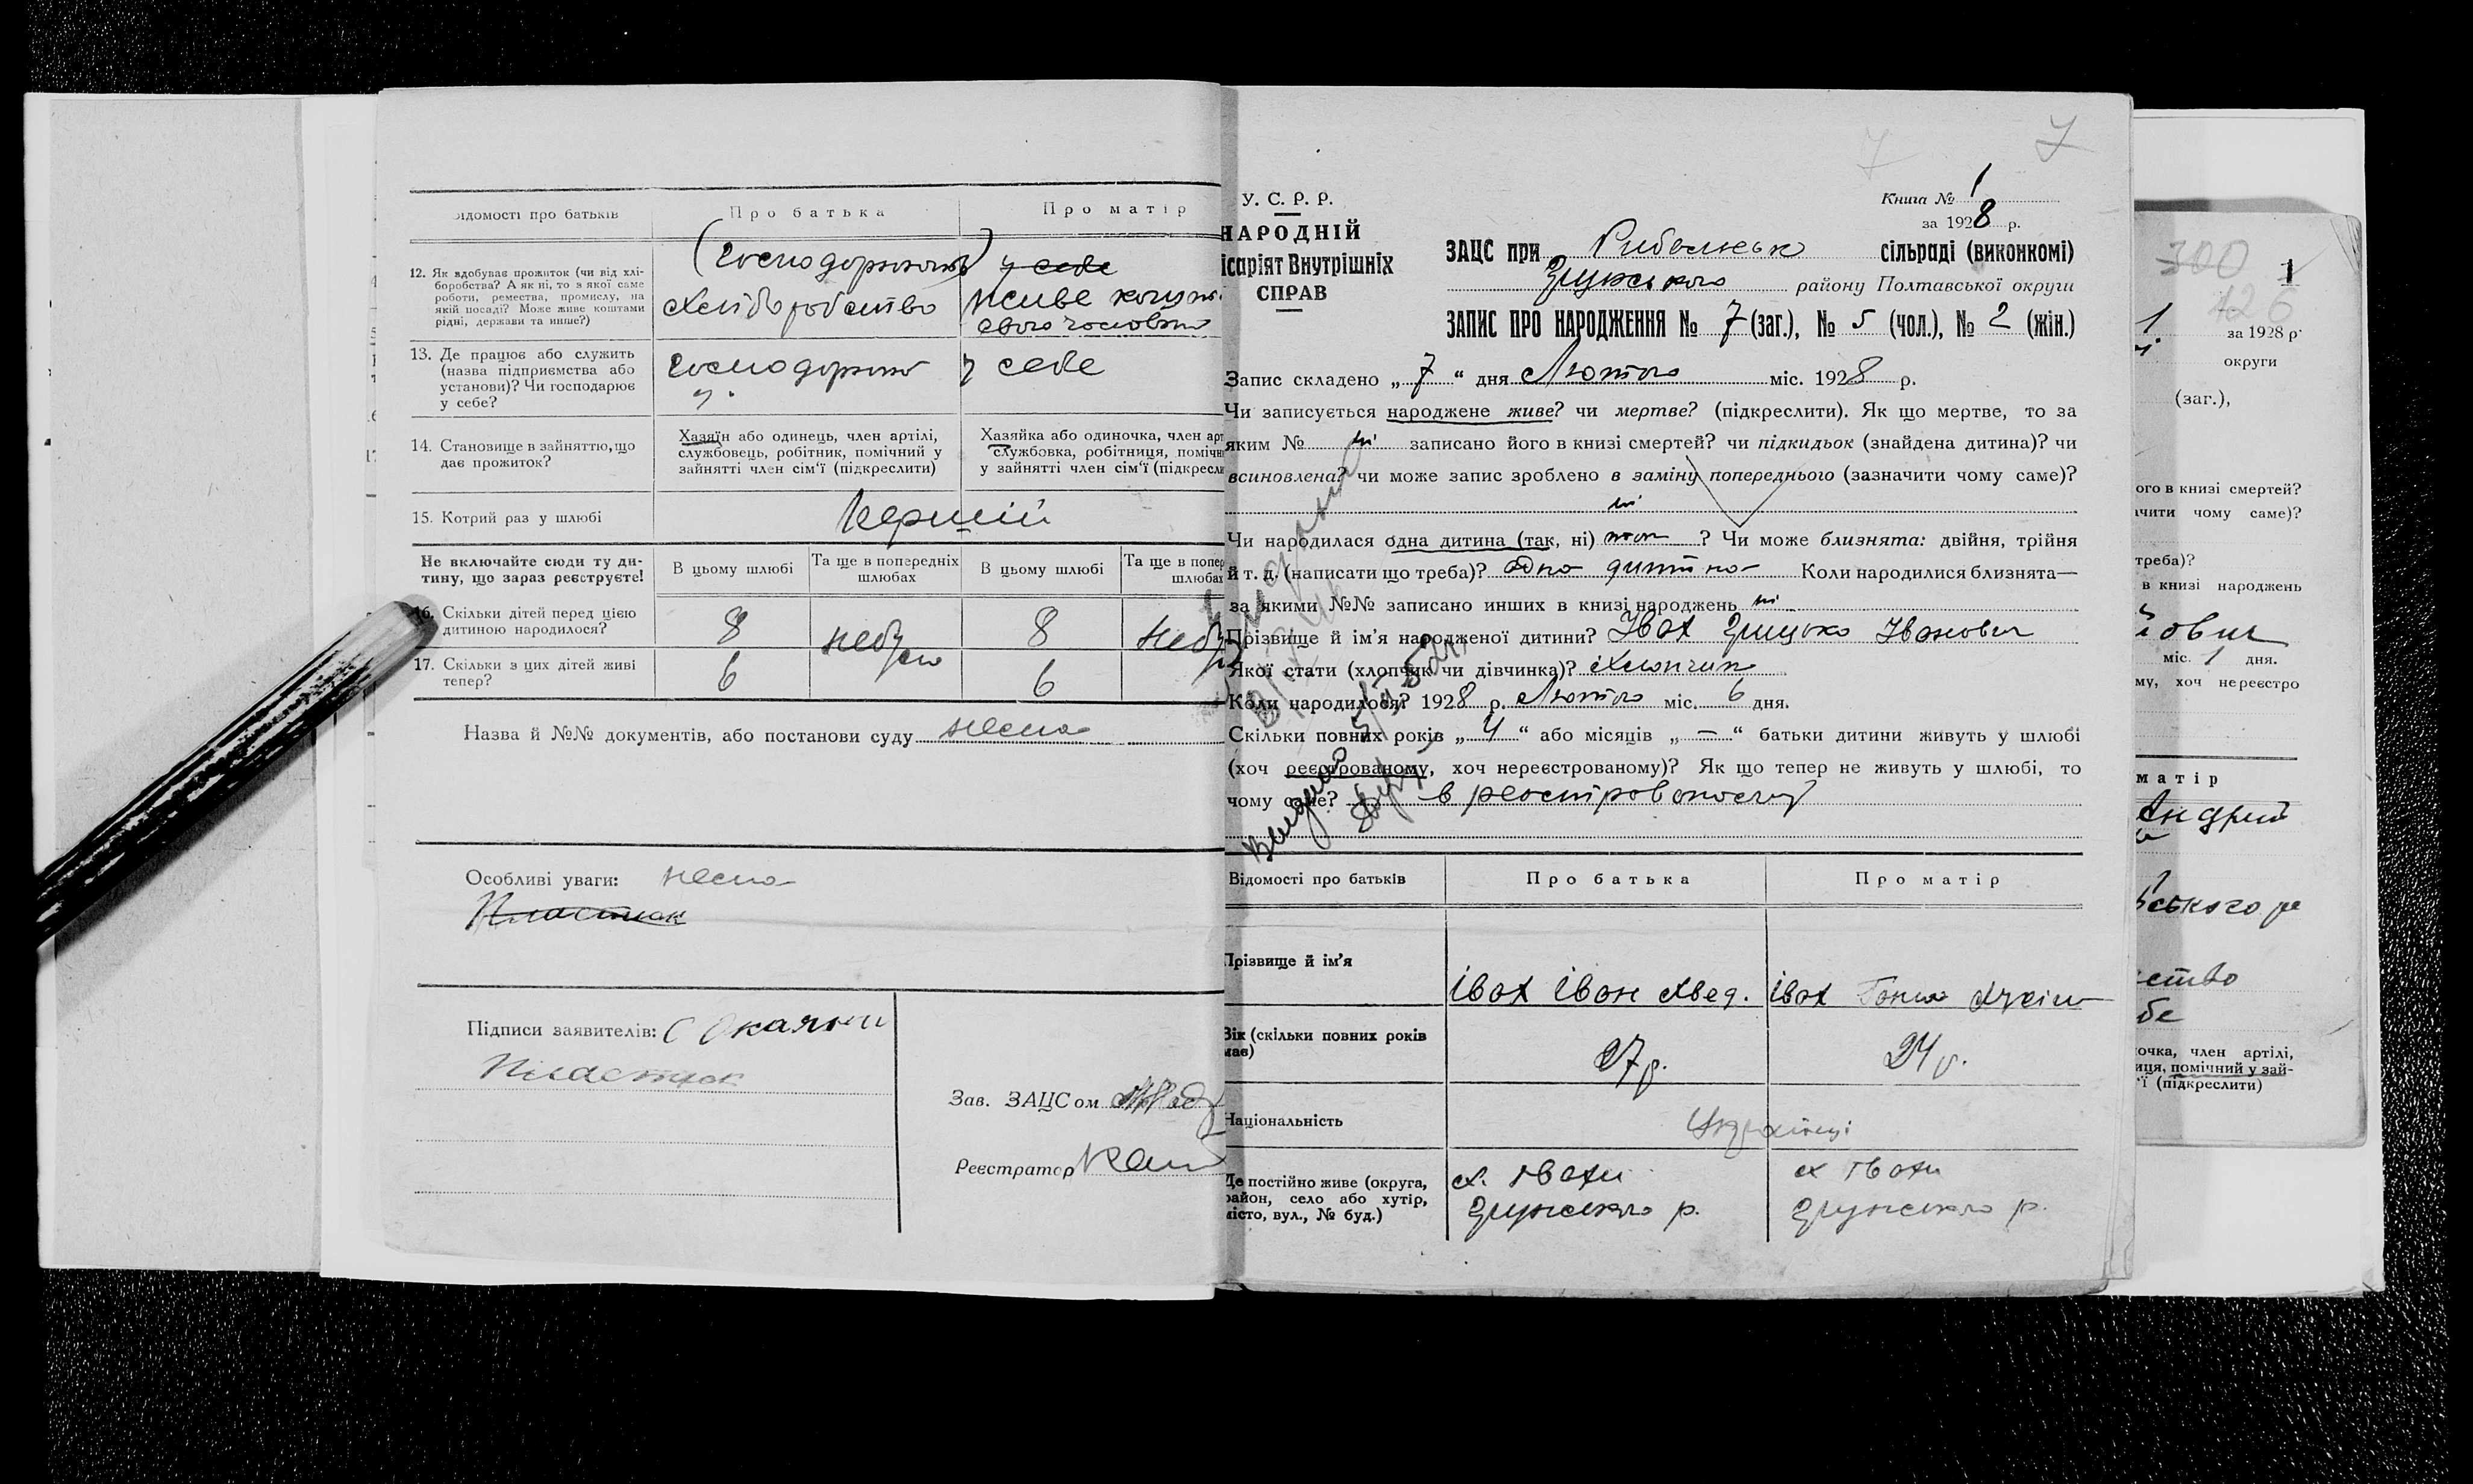 Відомості про батьків
Про батька
Про матір
12. Як здобуває прожиток (чи від хлі-
боробства? А як ні, то з якої саме
роботи, ремества, промислу, на
якій посаді? Може живе коштами
рідні, держави та инше?)
у себе
хліборобство
живе
свого
13. Де працює або служить
(назва підприємства або
установи)? Чи господарює
у себе?
у себе
14. Становище в зайняттю, що
дає прожиток?
Хазяїн або одинець, член артілі,
службовець, робітник, помічний у
зайнятті член сім'ї (підкреслити)
Хазяйка або одиночка, член арт
службовка, робітниця, помічн
у зайнятті член сім'ї (підкресли
15. Котрий раз у шлюбі
Перший
Не включайте сюди ту ди-
тину, що зараз реєструєте!
В цьому шлюбі
Та ще в попередніх
шлюбах
В цьому шлюбі
Та ще в попер
шлюбах
16. Скільки дітей перед цією
дитиною народилося?
8
небуло
8
небу
17. Скільки з цих дітей живі
тепер?
6
6
Назва й №№ документів, або постанови суду нема
Особливі уваги: нема
Пластюк
Підписи заявителів:
Пластюк
Зав. ЗАЦСом
Реєстратор
7
7
У. С. Р. Р.
НАРОДНІЙ
ісаріят Внутрішніх
СПРАВ
Книга № 1
за 1928 р.
ЗАЦС при сільраді (виконкомі)
Грунського району Полтавської округи
ЗАПИС ПРО НАРОДЖЕННЯ № 7 (заг.), № 5 (чол.), № 2 (жін.)
Запис складено „ 7 “ дня Лютого міс. 1928 р.
Чи записується народжене живе? чи мертве? (підкреслити). Як що мертве, то за
яким № ні записано його в книзі смертей? чи підкидьок (знайдена дитина)? чи
всиновлена? чи може запис зроблено в заміну попереднього (зазначити чому саме)?
ні
Чи народилася одна дитина (так, ні) так ? Чи може близнята: двійня, трійня
й т. д. (написати що треба)? Одна дитина Коли народилися близнята—
за якими №№ записано инших в книзі народжень ні
Прізвище й ім'я народженої дитини? Івах Грицько Іванович
Якої стати (хлопчик чи дівчинка)? Хлопчик
Коли народилося? 1928 р. Лютого міс. 6 дня.
Скільки повних років „ 4 “ або місяців „ — “ батьки дитини живуть у шлюбі
(хоч реєстрованому, хоч нереєстрованому)? Як що тепер не живуть у шлюбі, то
чому саме? в реєстрованому
Відомості про батьків
Про батька
Про матір
Прізвище й ім'я
Івах Іван Хвед.
Івах Ганна
Вік (скільки повних років
має)
27 р.
24 р.
Національність
Українці
Де постійно живе (округа,
район, село або хутір,
місто, вул., № буд.)
х. Івахи
Грунського р.
х Івахи
Грунського р.
300
1
126
1
за 1928 р.
округи
(заг.),
ого в книзі смертей?
ачити чому саме)?
треба)?
в книзі народжень
ович
міс. 1 дня.
му, хоч нереєстро
матір
Андрий
ського р
ство
бе
очка, член артілі,
иця, помічний у зай-
'ї (підкреслити)